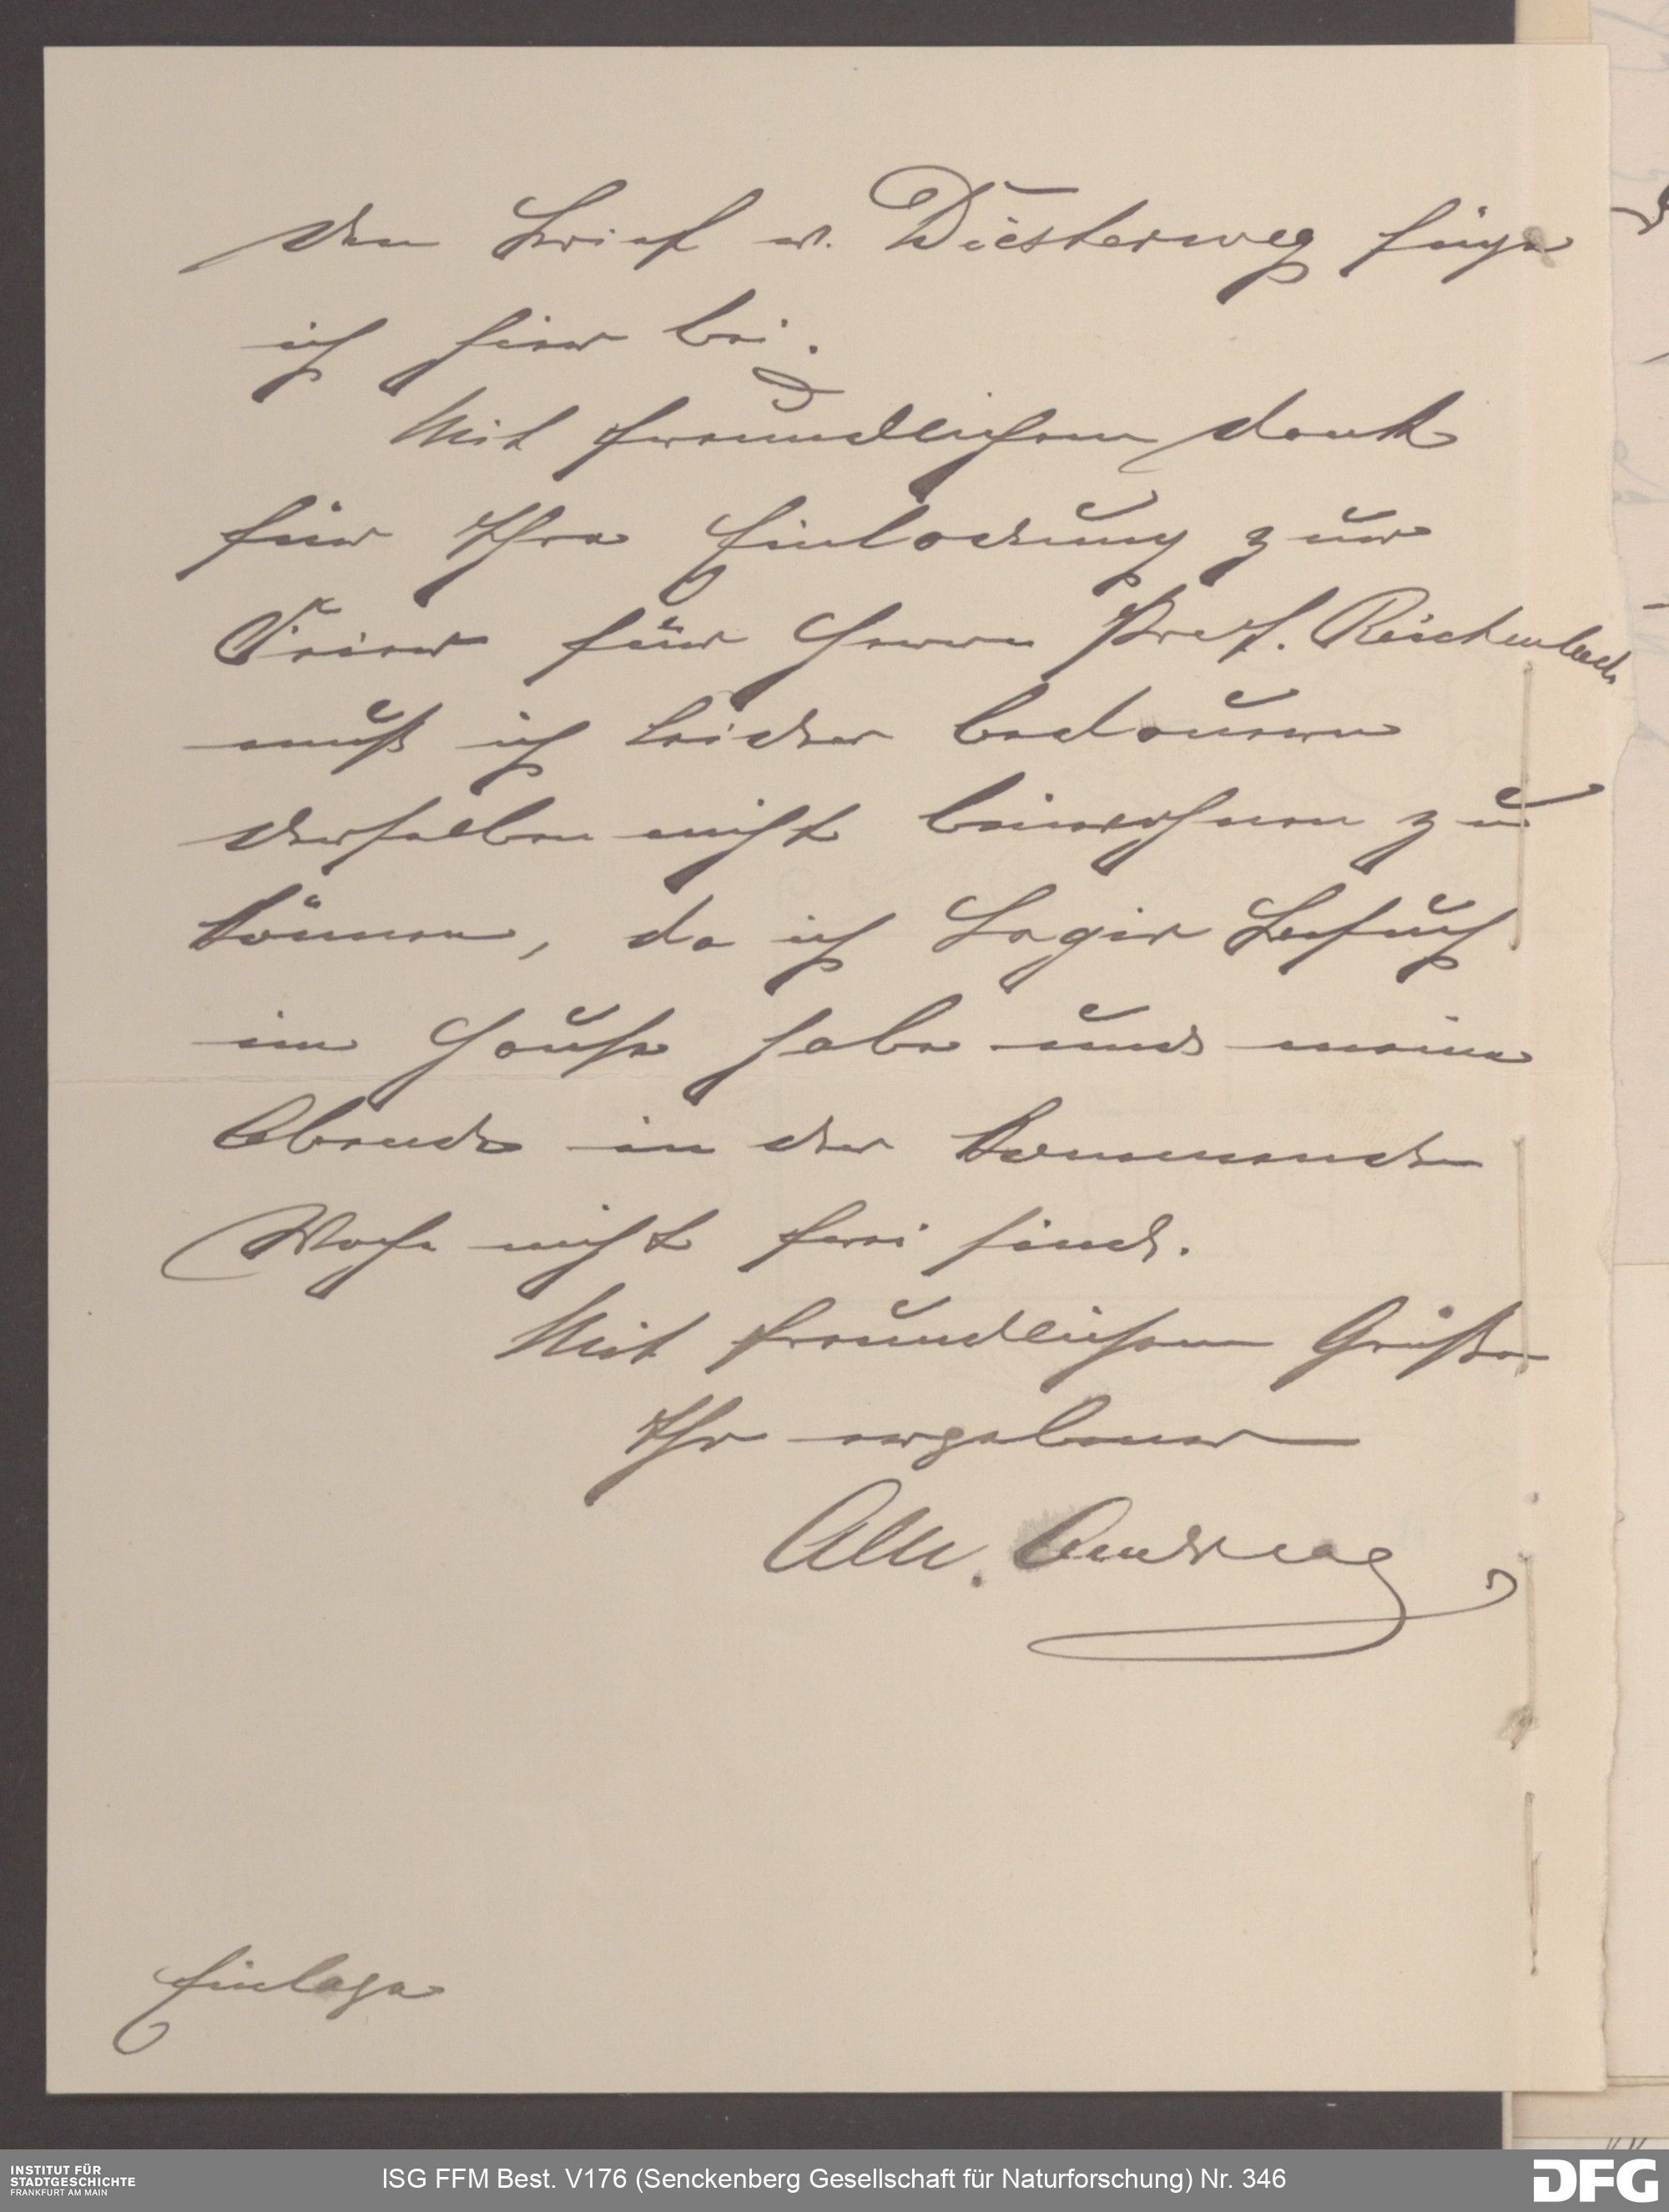 Den Brief v. Diesterweg füge
ich hier bei.
Mit freundlichem Dank
für Ihre Einladung zur
Feier für Herrn Prof. Reichenbach
muß ich leider bedauern
derselben nicht beiwohnen zu
können, da ich Logir Besuch
im Hause habe und meine
Abende in der kommenden
Woche nicht frei sind.
Mit freundlichem Gruße
Ihr ergebener
Alb. Andreae
Einlage
INSTITUT FÜR
STADTGESCHICHTE
FRANKFURT AM MAIN
ISG FFM Best. V176 (Senckenberg Gesellschaft für Naturforschung) Nr. 346
DFG